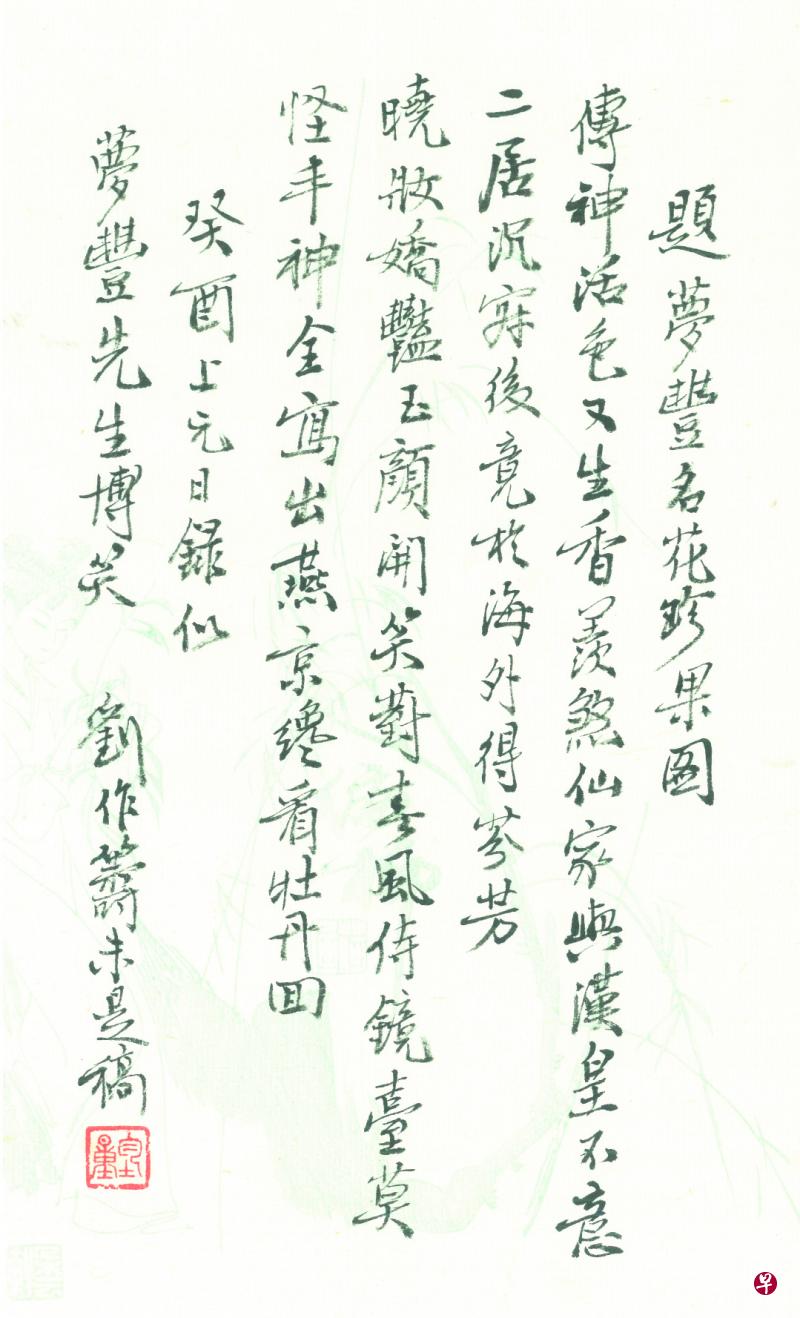 題夢豐名花珍果圖
傳神活色又生香羨煞仙家與漢皇不意
二居沉寂後竟於海外得芬芳
曉妝嬌豔玉顏開笑對春風侍鏡臺莫
怪丰神全寫出燕京纔看牡丹回
癸酉上元日錄似
夢豐先生博笑 劉作籌未是稿
均量
早